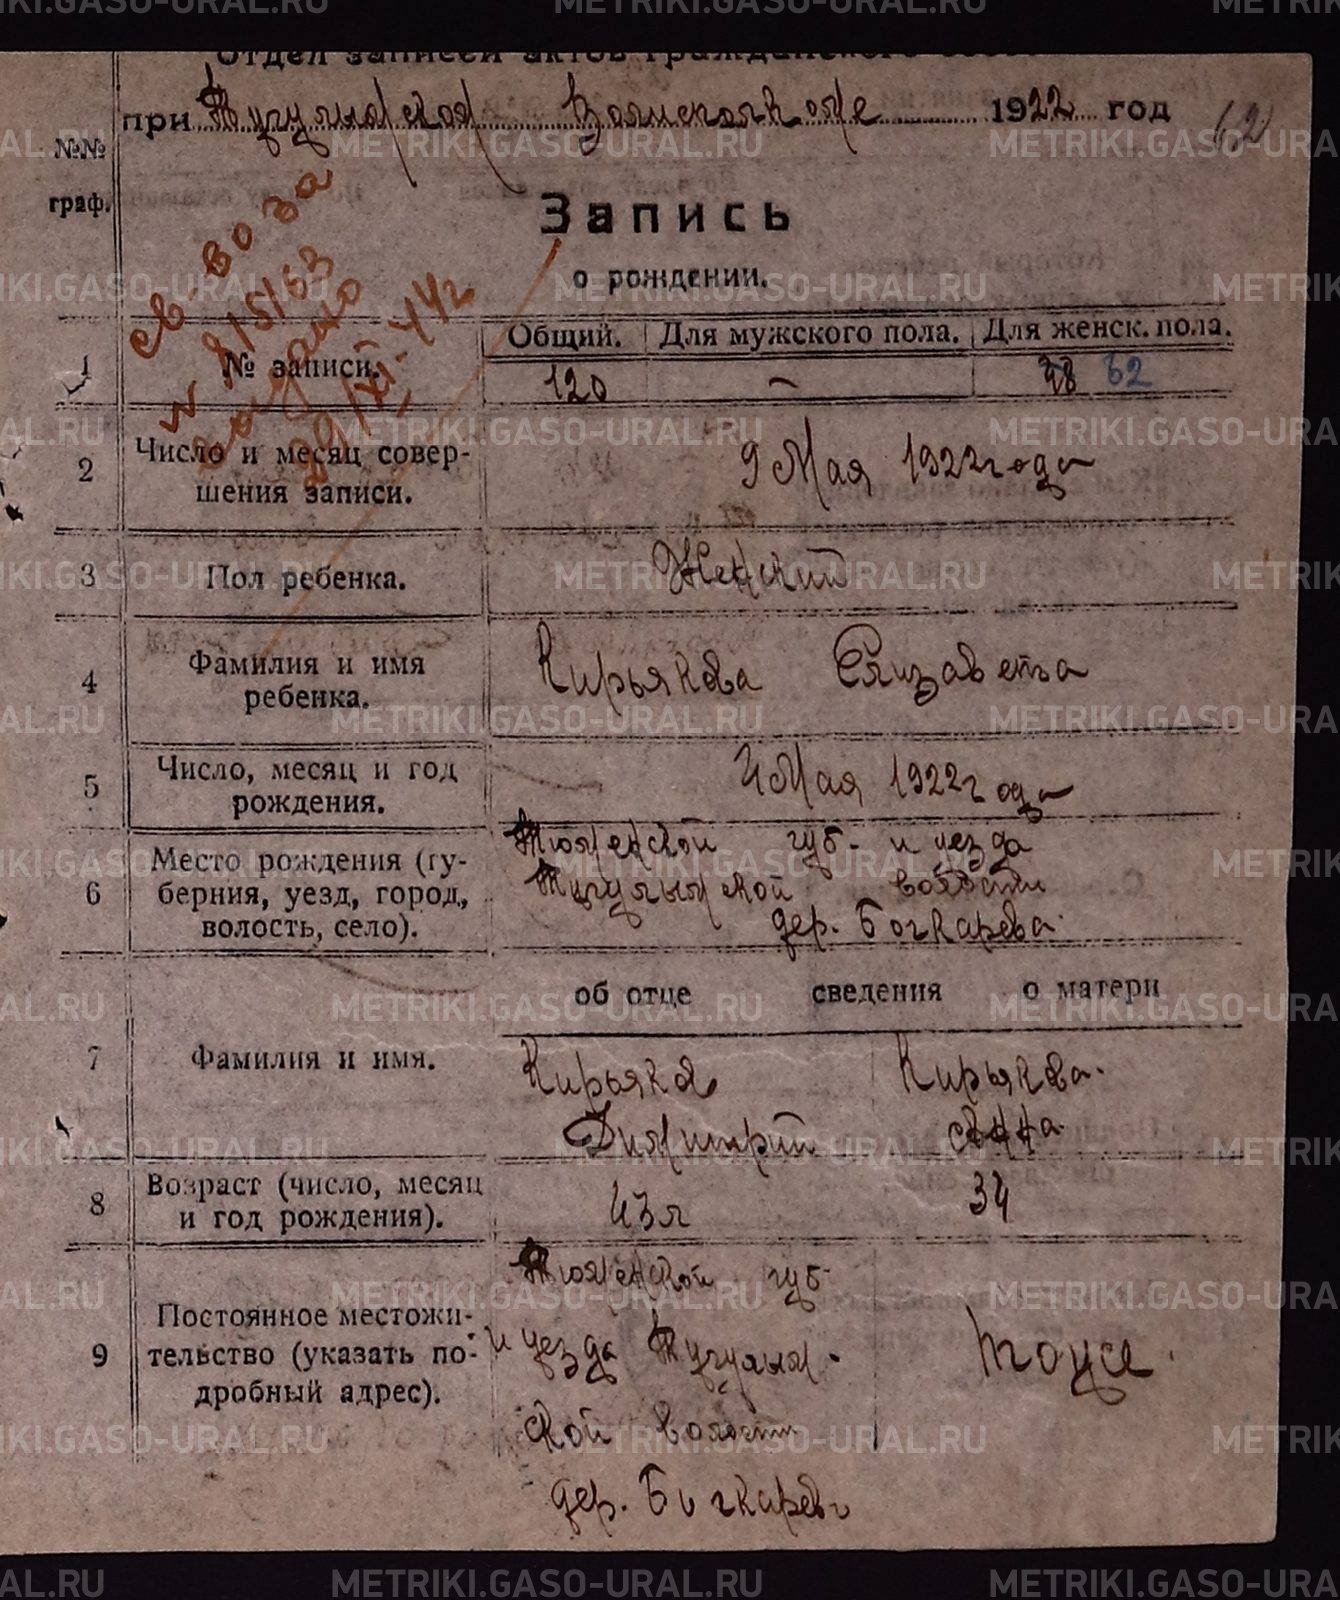 отдел записей актов гражданского
при Тугулымской Волисполкоме 1922 год
62
№№
граф.
Запись
о рождении.
св-во за
8/5/63
Общий. Для мужского пола. Для женск. пола.
1 № записи. 120 — 48 62
2 Число и месяц совершения записи. 9 Мая 1922 года
3 Пол ребенка. Женский
4 Фамилия и имя ребенка. Кирьякова Елизавета
5 Число, месяц и год рождения. 4 Мая 1922 года
6 Место рождения (губерния, уезд, город, волость, село).
Тюменской губ. и уезда
Тугулымской волости
дер. Бочкарева.
об отце сведения о матери
7 Фамилия и имя. Кирьяков Кирьякова.
Димитрий Анна
8 Возраст (число, месяц и год рождения). 43 л 34
9 Постоянное местожительство (указать подробный адрес).
Тюменской губ.
и уезда Тугулым-
ской волости
дер. Бочкарева
тоже
METRIKI.GASO-URAL.RU